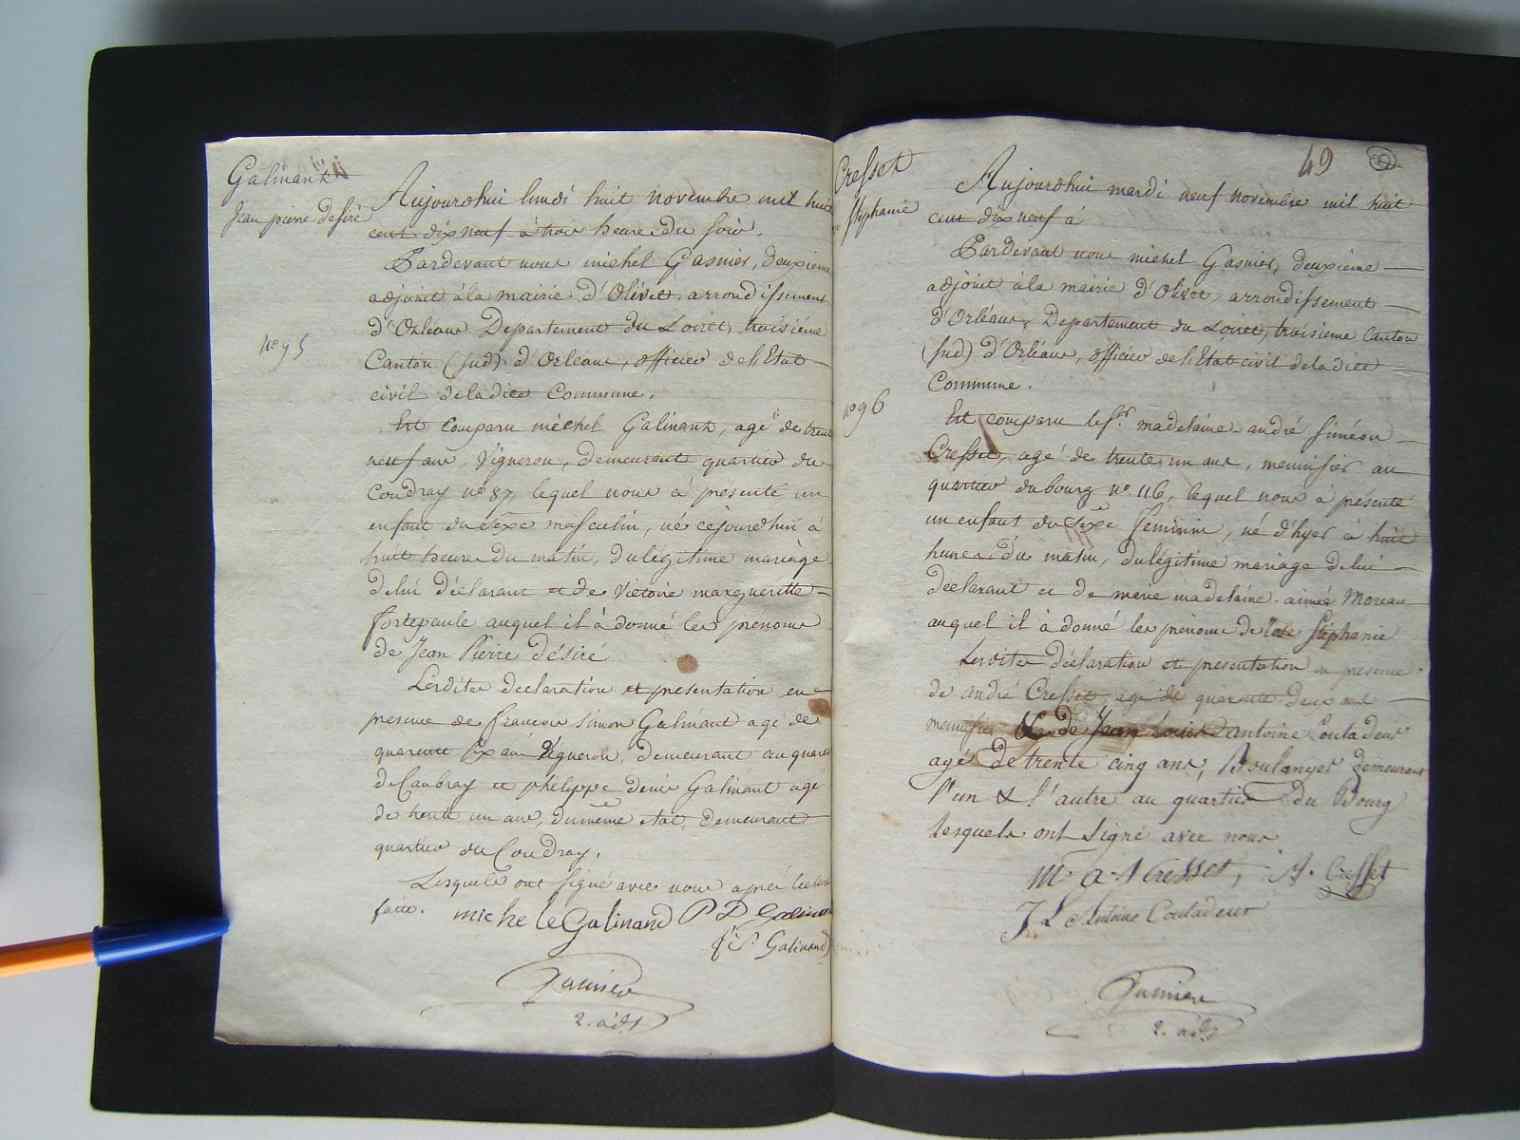 Galinant
Jean pierre desiré
n° 95
Aujourdhui lundi huit novembre mil huit
cent dix neuf à trois heures du soir.
Pardevant nous michel Gasnier, deuxieme
adjoint à la mairie d'Olivet arrondissement
d'Orléans Departement du Loiret, troisième
Canton (sud) d'Orleans, officier de l'Etat
civil de ladite Commune.
Est comparu michel Galinant, agé de trente
neuf ans, Vigneron, demeurant quartier du
Coudray n° 87, lequel nous à présenté un
enfant du sexe masculin, né cejourdhui à
huit heures du matin, du légitime mariage
de lui déclarant et de Victoire margueritte
fortepaule auquel il à donné les prenoms
de Jean Pierre désiré
Lesdites declaration et presentation en
presence de francois simon Galinant agé de
quarante six ans Vigneron, demeurant au quartier
de Caubray et philippe denis Galinant agé
de trente un ans, du même état, demeurant
quartier du Coudray.
Lesquels ont signé avec nous après lecture
faite. michel Galinand P D Galinand
f. S. Galinand
Gasnier
2. adjt
49
Cresset
Stéphanie
n° 96
Aujourdhui mardi neuf novembre mil huit
cent dix neuf à
Pardevant nous michel Gasnier, deuxieme
adjoint à la mairie d'Olivet, arrondissement
d'Orléans, Departement du Loiret, troisieme Canton
(sud) d'Orléans, officier de l'Etat civil de ladite
Commune.
Est comparu le sr. madelaine andré siméon
Cresset, agé de trente un ans, menuisier au
quartier du bourg n° 116, lequel nous à présenté
un enfant du sexe feminin, né d'hyer à huit
heures du matin, du légitime mariage de lui
declarant et de marie madelaine aimée Moreau
auquel il à donné les prénoms de Rose Stéphanie
Lesdites déclaration et presentation en presence
de andré Cresset, agé de quarante deux ans
menuisier & de Jean Louis Antoine Coutadeur
agé de trente cinq ans, Boulanger demeurant
l'un & l'autre au quartier du Bourg
lesquels ont signé avec nous
M A S Cresset, A. Cresset
J L Antoine Coutadeur
Gasnier
2. adjt